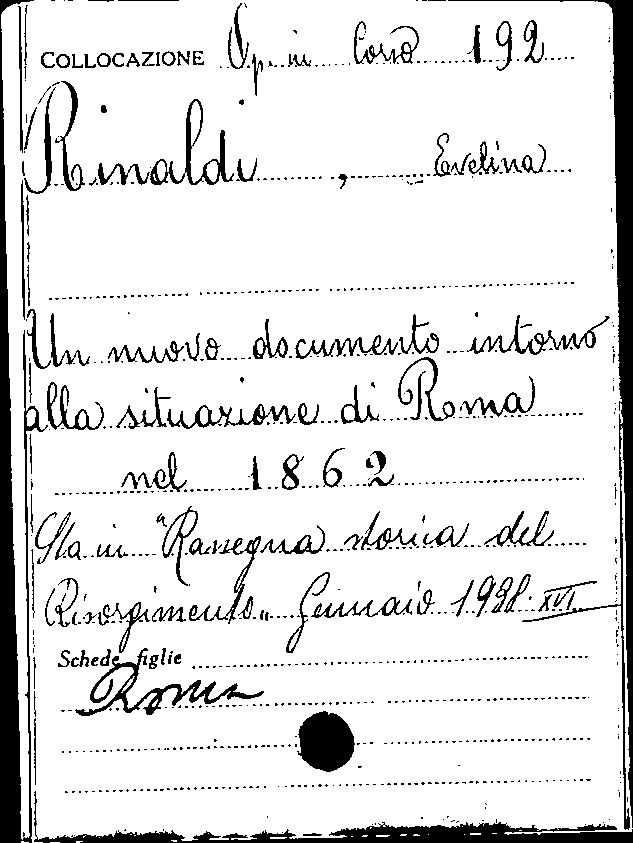 COLLOCAZIONE Op. in Corso 192
Rinaldi, Evelina
Un nuovo documento intorno
alla situazione di Roma
nel 1862
Sta in "Rassegna storica del
Risorgimento„ Gennaio 1938·XVI
Schede figlie
Roma